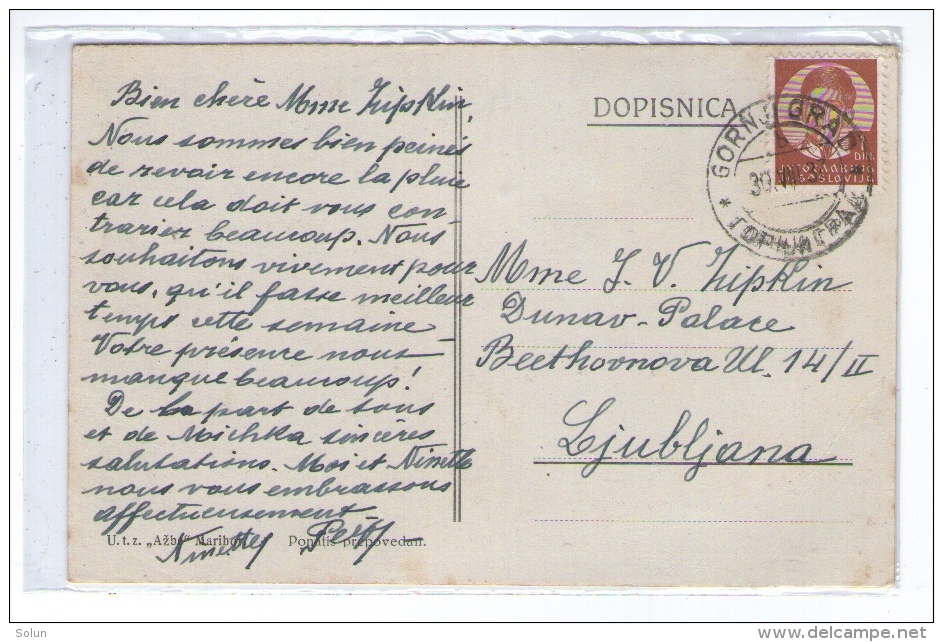 Bien chère Mme Zipkin,
Nous sommes bien peinés
de revoir encore la pluie
car cela doit vous con-
trarier beaucoup. Nous
souhaitons vivement pour
vous, qu'il fasse meilleur
temps cette semaine
Votre présence nous
manque beaucoup!
De la part de tous
et de Michka sincères
salutations. Moi et Ninette
nous vous embrassons
affectueusement
Ninette
U. t. z. „Ažbe" Maribor. Ponatis prepovedan.
DOPISNICA
GORNJI GRAD
30. VII
ГОРЊИ ГРАД
DIN.
ЈУГОСЛАВИЈА
JUGOSLAVIJA
Mme J. V. Zipkin
Dunav-Palace
Beethovnova Ul. 14/II
Ljubljana
Solun
delcampe.net